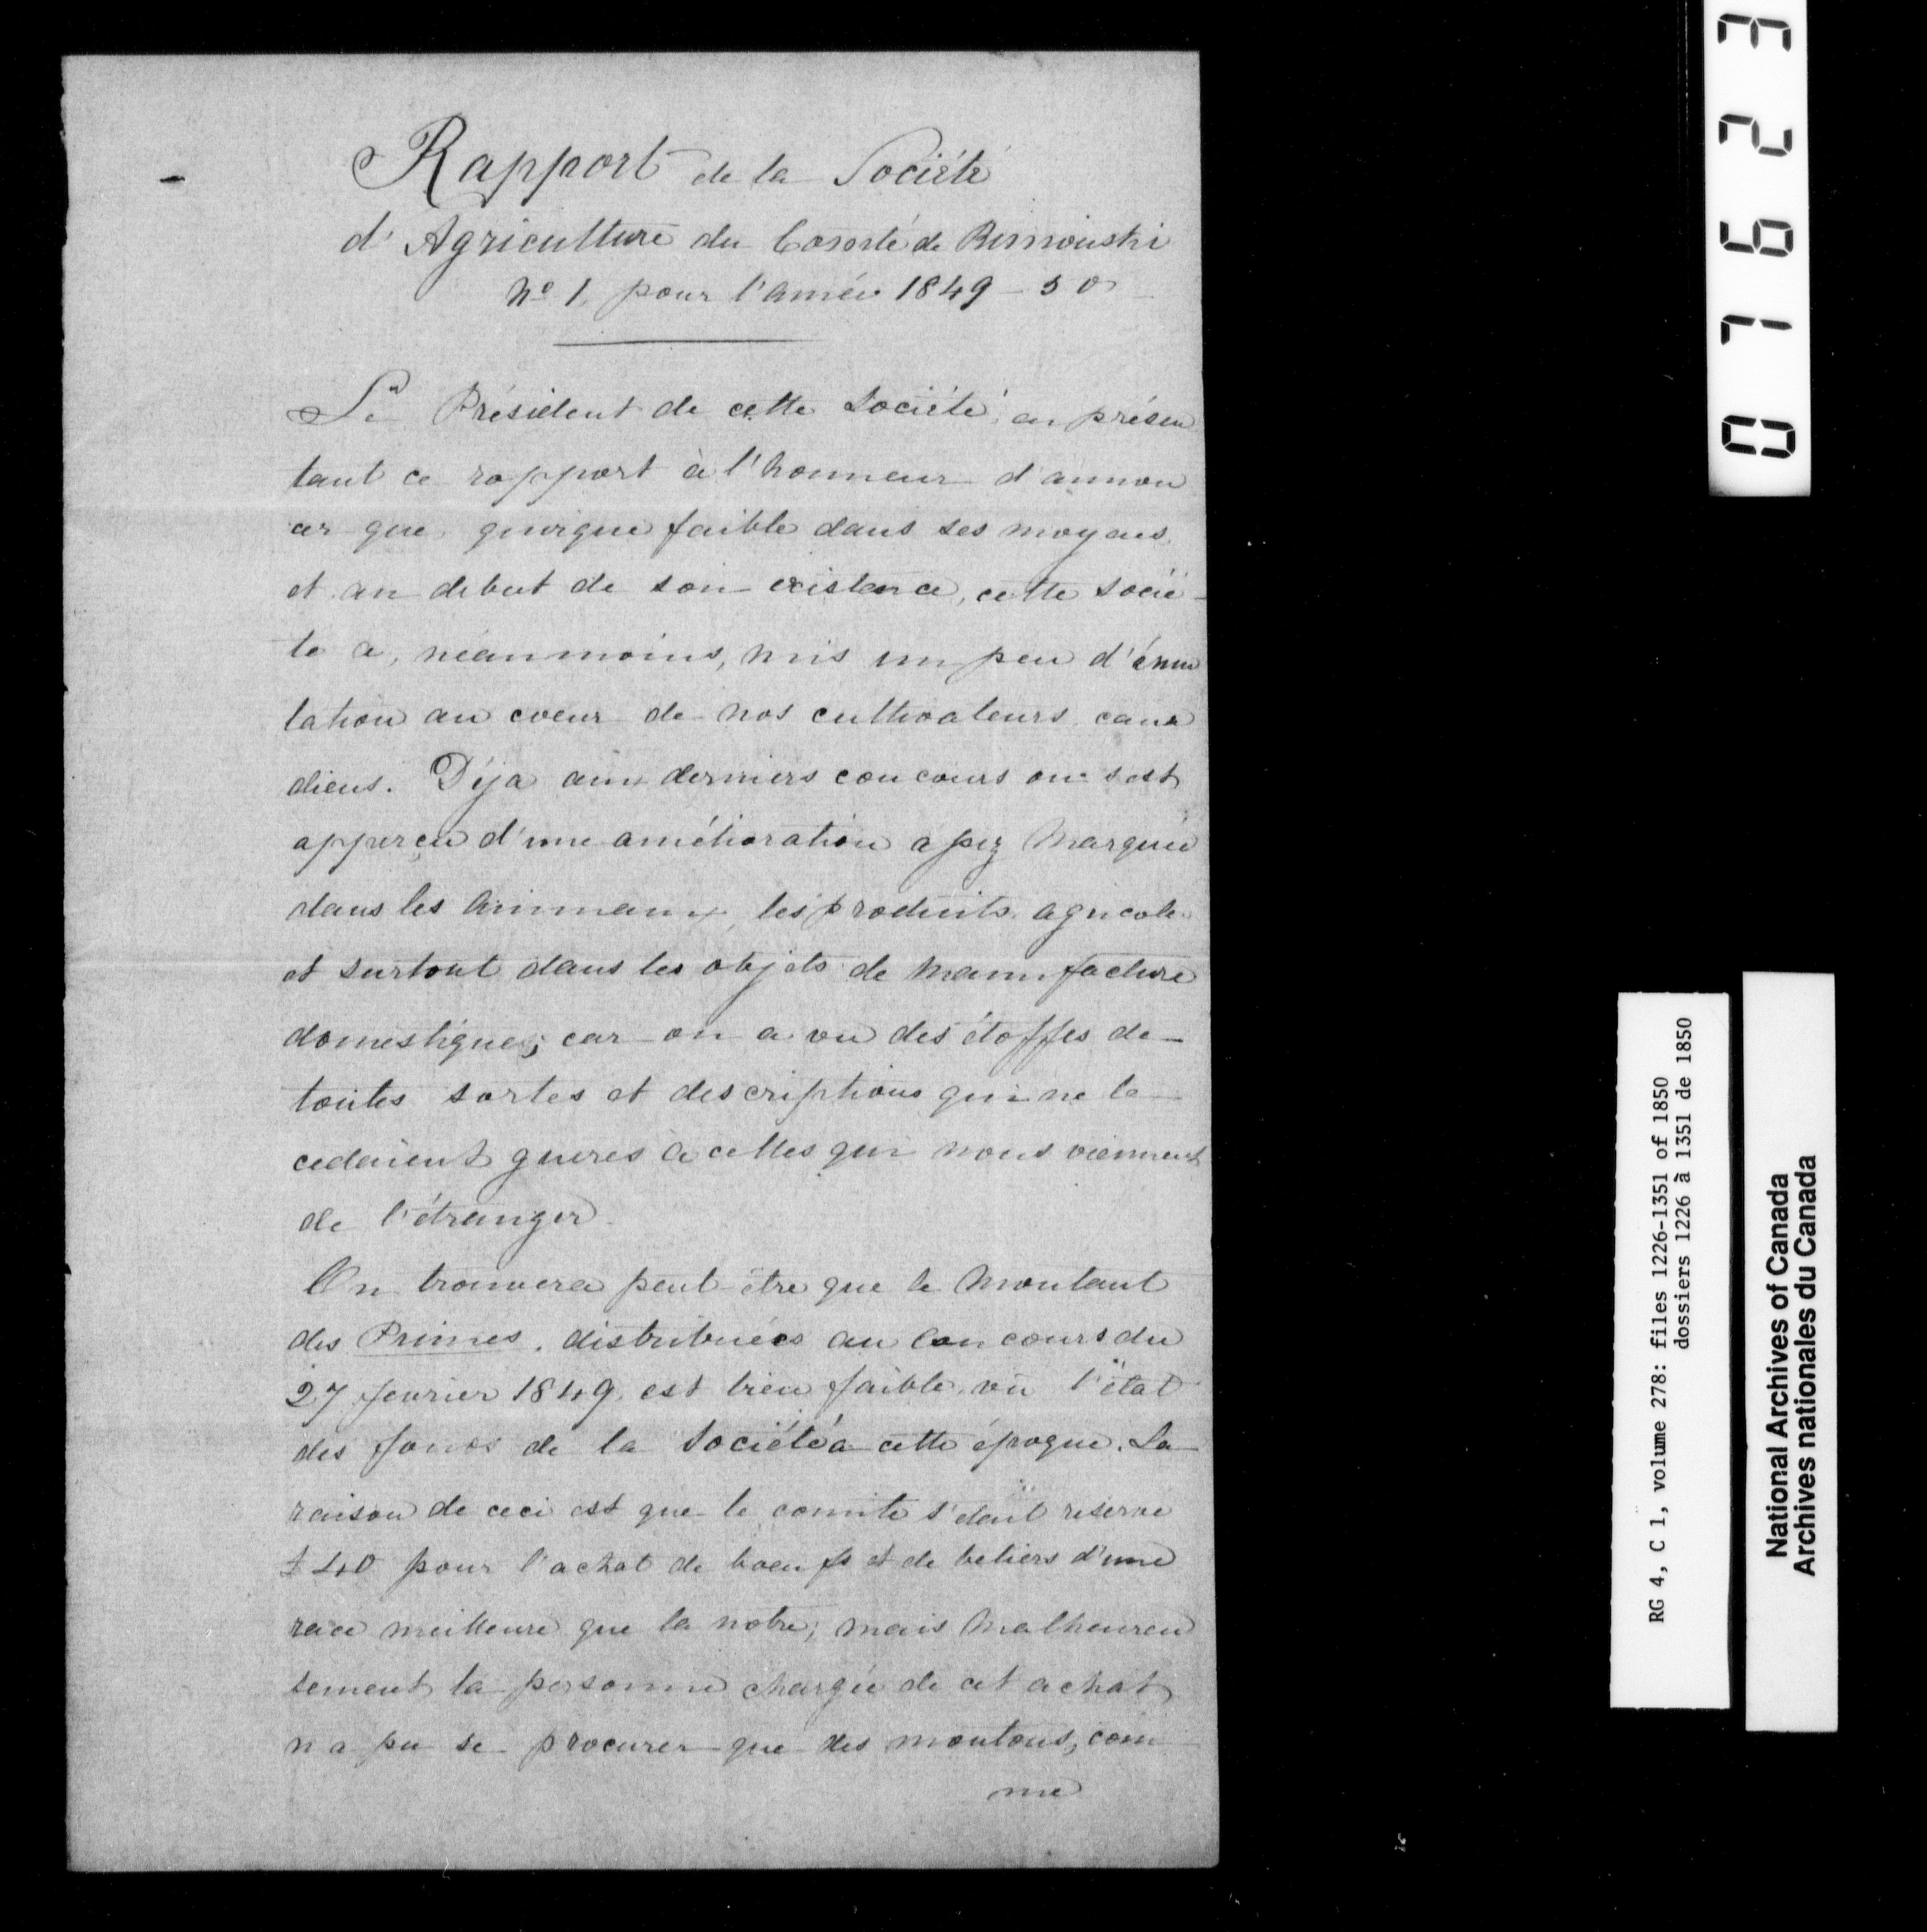 Rapport de la Société
d'Agriculture du Comté de Rimouski
No 1, pour l'année 1849-50
Le Président de cette Société, en présen
tant ce rapport à l'honneur d'annon
cer que, quoique faible dans ses moyens
et au debut de son existence, cette Socié-
te a, néanmoins, mis un peu d'ému
lation au coeur de nos cultivateurs cana
diens. Déja aux derniers concours on s'est
apperçu d'une amélioration assez marquée
dans les animaux, les produits agricoles
et surtout dans les objets de manufacture
domestique; car on a vu des étoffes de
toutes sortes et descriptions qui ne le
cedaient gueres à celles qui nous viennent
de l'étranger.
On trouvera peut-être que le montant
des Primes, distribuées au Concours du
27 fevrier 1849, est bien faible, vû l'état
des fonds de la Société à cette époque. La
raison de ceci est que le comité s'était reservé
£40 pour l'achat de boeufs et de beliers d'une
race meilleure que la notre; mais malheureu
sement la personne chargée de cet achat
n'a pu se procurer que des moutons, com
me
07623
RG 4, C 1, volume 278: files 1226-1351 of 1850
dossiers 1226 à 1351 de 1850
National Archives of Canada
Archives nationales du Canada